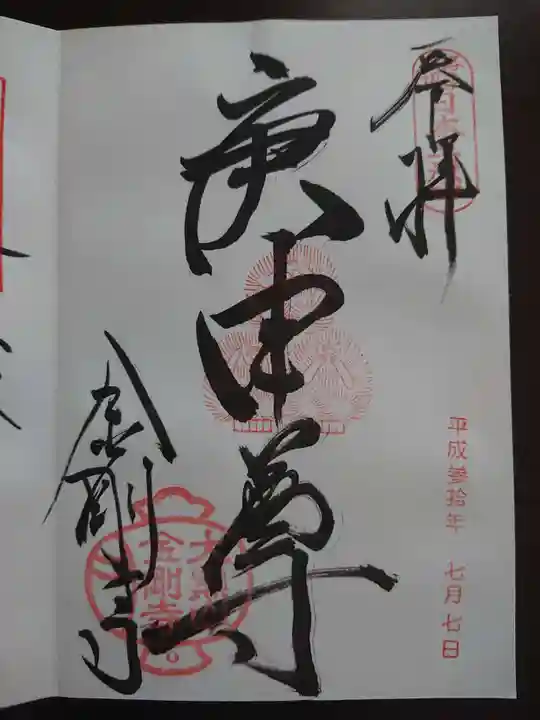 奉拝
平成参拾年 七月七日
庚申尊
金剛寺
金剛寺